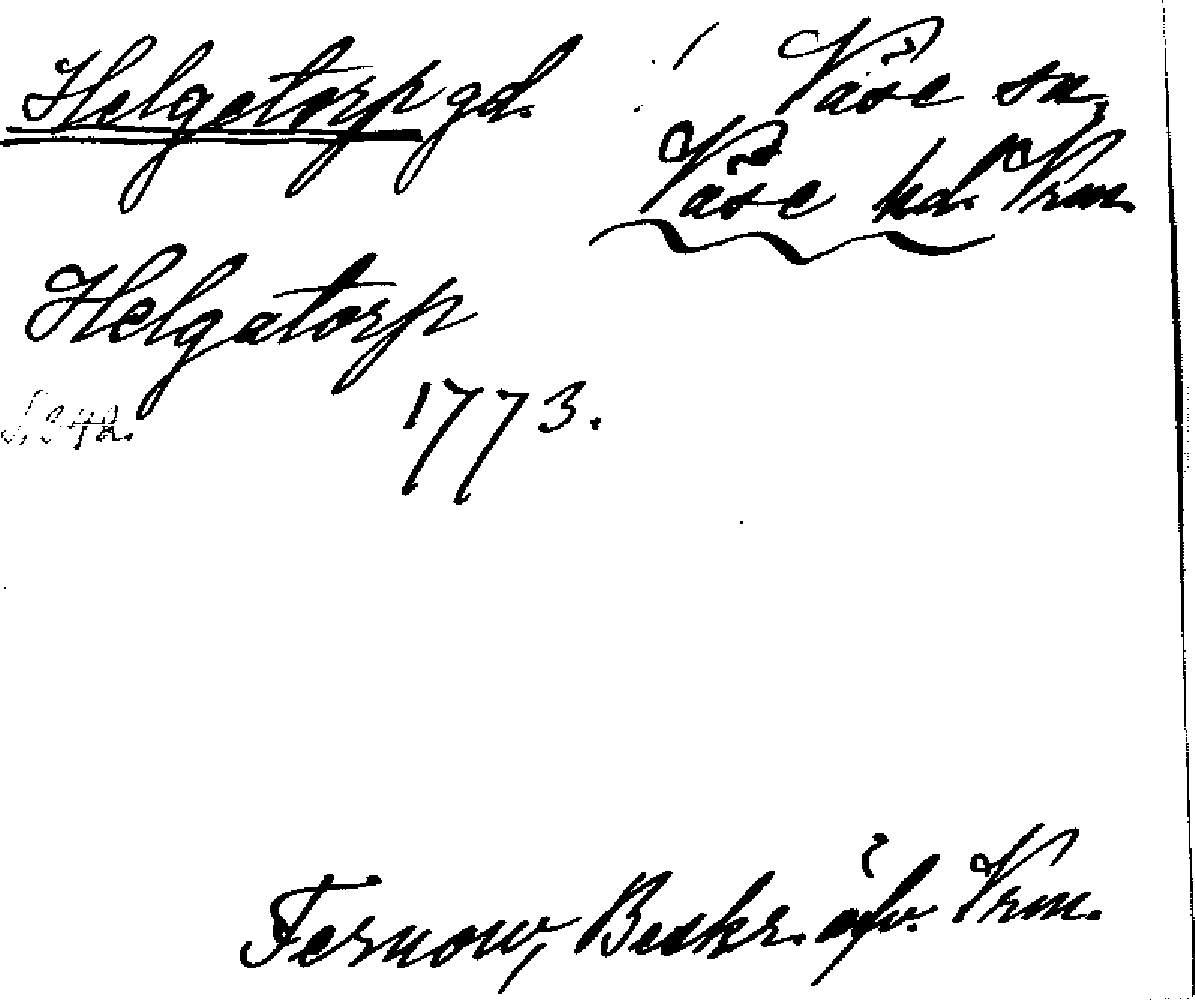 Helgetorp gd.
Väse sn,
Väse hd. Vrm.
Helgatorp
S. 342.
1773.
Fernow, Beskr. öfv. Vrm.